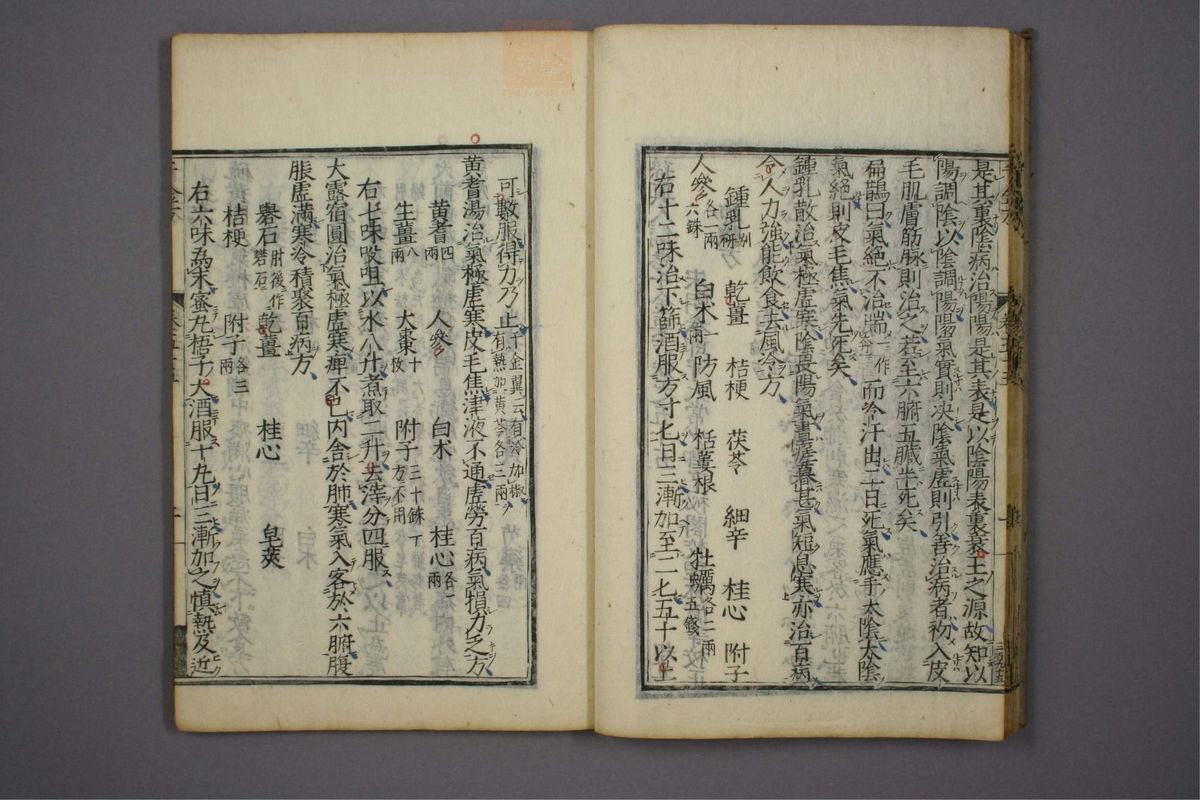 是其裏陰病治陽陽是其表是以陰陽表裏衰王之源故知以
陽調陰以陰調陽陽氣實則决陰氣虛則引善治病者初入皮
毛肌膚筋脉則治之若至六腑五臟半死矣
扁鵲曰氣絶不治喘而冷汗出二日死氣應手太陰太陰
氣絶則皮毛焦氣先死矣
鍾乳散治氣極虛寒陰畏陽氣晝瘥暮甚氣短息寒亦治百病
令人力強能飲食去風冷方
鍾乳別研 乾薑 桔梗 茯苓 細辛 桂心 附子
人參各一兩六銖 白术一兩 防風 栝蔞根 牡蠣各二兩五錢
右十二味治下篩酒服方寸匕日三漸加至二匕五十以上
可數服得力乃止千金翼云有冷加椒有熱加黄芩各三兩
黄耆湯治氣極虛寒皮毛焦津液不通虛勞百病氣損力乏方
黄耆四兩 人參 白术 桂心各一兩
生薑八兩 大棗十枚 附子三十銖
右七味㕮咀以水八升煮取二升去滓分四服
大露宿圓治氣極虛寒痺不已內舍於肺寒氣入客於六腑腹
脹虛滿寒冷積聚百病方
礜石肘後作礬石 乾薑 桂心 皂莢
桔梗 附子各三兩
右六味為末蜜丸梧子大酒服十丸日三漸加之慎熱及近